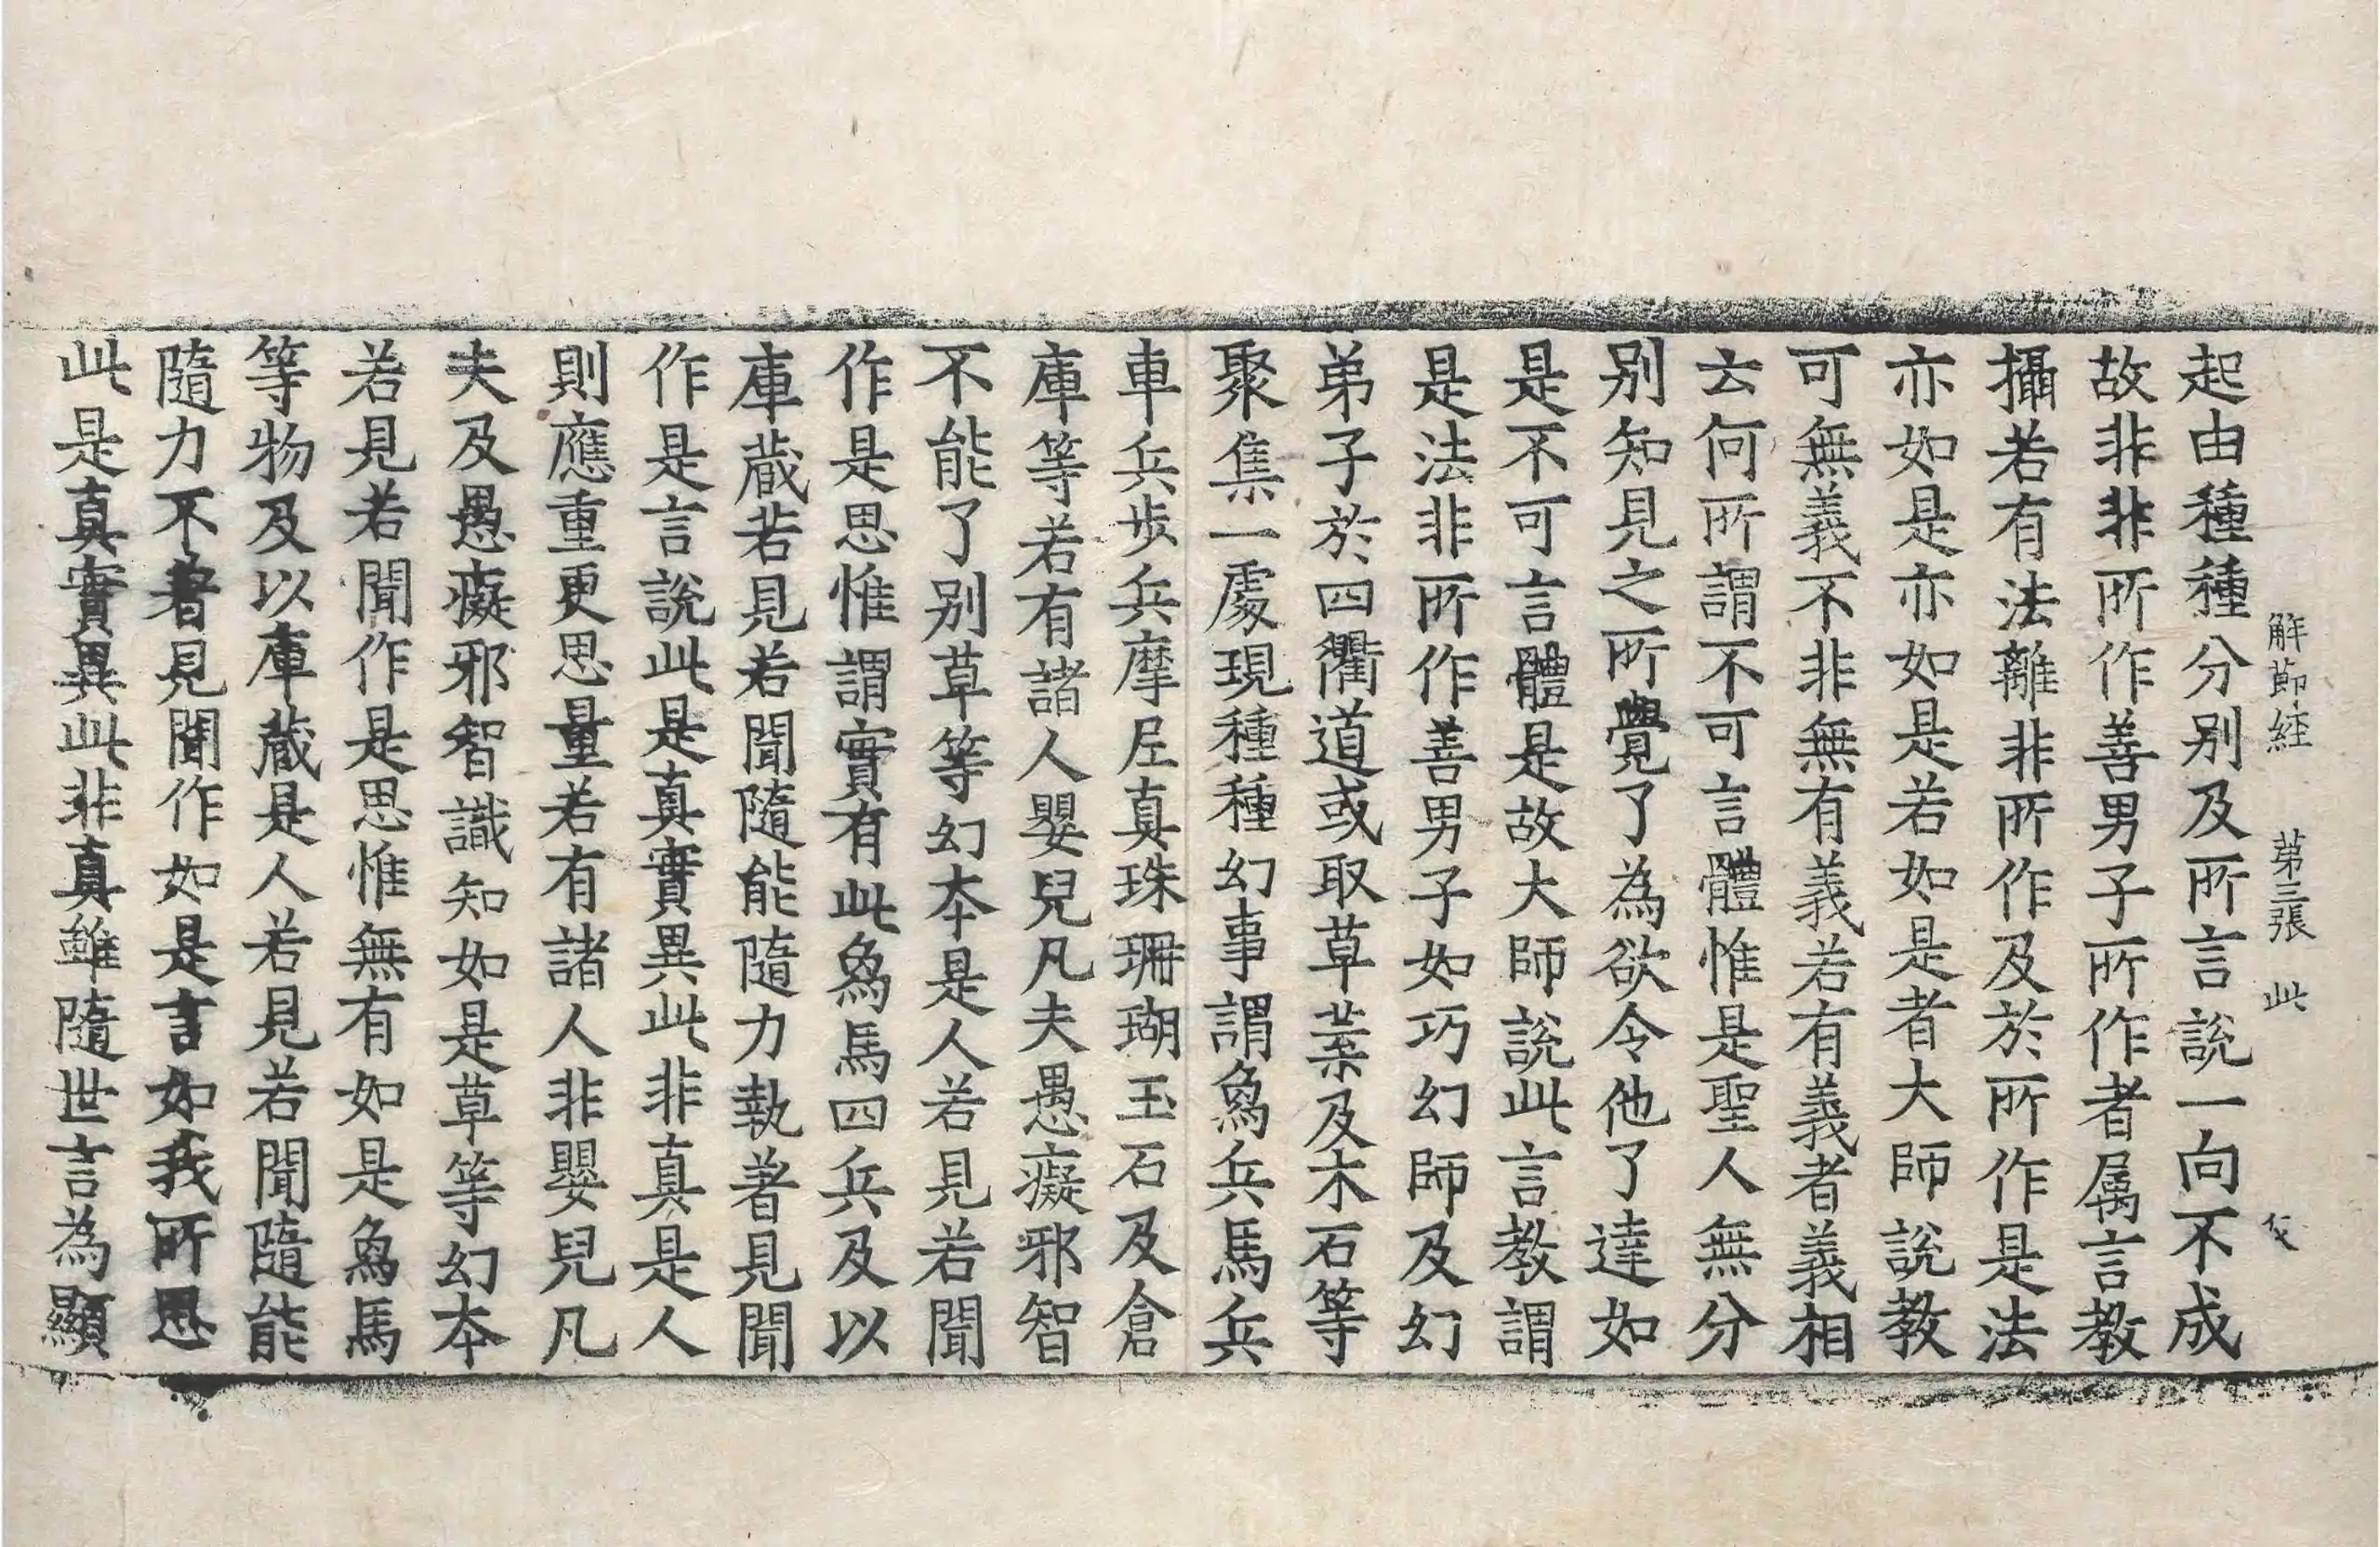 解節經 第三張 此
起由種種分別及所言說一向不成
故非非所作善男子所作者属言教
攝若有法離非所作及於所作是法
亦如是亦如是若如是者大師說教
可無義不非無有義若有義者義相
云何所謂不可言體惟是聖人無分
别知見之所覺了為欲令他了達如
是不可言體是故大師說此言教謂
是法非所作善男子如巧幻師及幻
弟子於四衢道或取草葉及木石等
聚集一處現種種幻事謂象兵馬兵
車兵步兵摩尼真珠珊瑚玉石及倉
庫等若有諸人嬰兒凡夫愚癡邪智
不能了别草等幻本是人若見若聞
作是思惟謂實有此象馬四兵及以
庫蔵若見若聞隨能隨力執著見聞
作是言說此是真實異此非真是人
則應重更思量若有諸人非嬰兒凡
夫及愚癡邪智識知如是草等幻本
若見若聞作是思惟無有如是象馬
等物及以庫蔵是人若見若聞隨能
隨力不著見聞作如是言如我所思
此是真實異此非真雖隨世言為顯